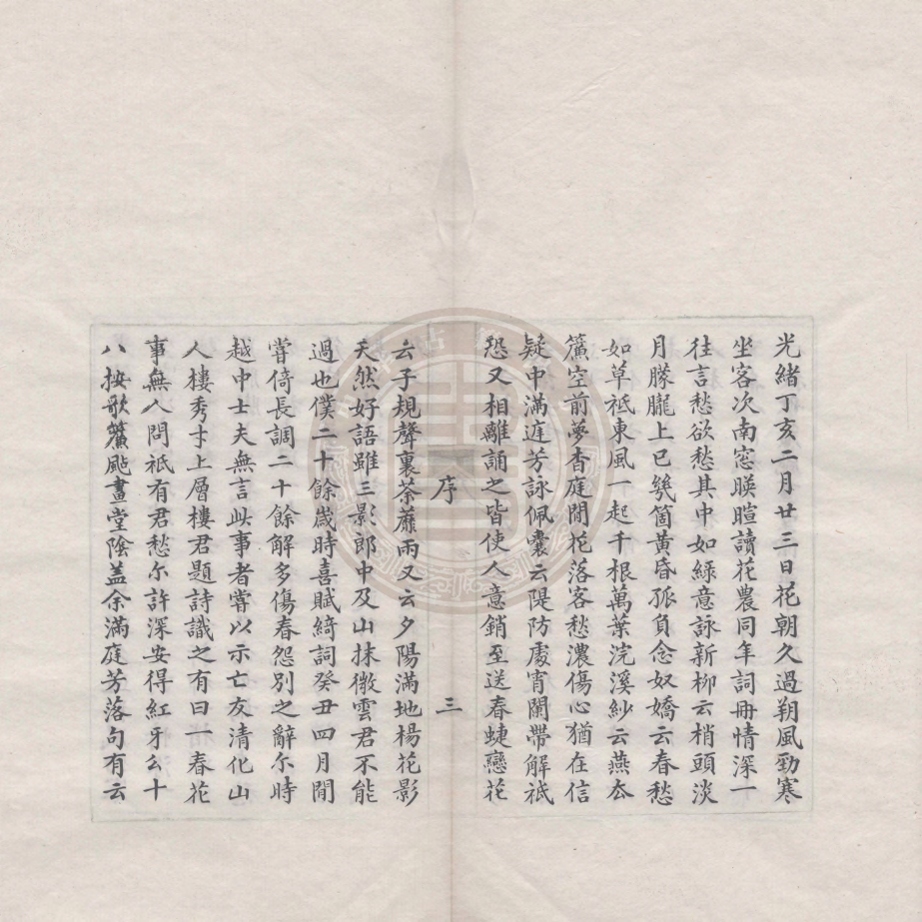 光緒丁亥二月廿三日花朝久過朔風勁寒
坐客次南窓暎暄讀花農同年詞冊情深一
往言愁欲愁其中如綠意詠新柳云梢頭淡
月朦朧上已幾箇黃昏孤負念奴嬌云春愁
如草祗東風一起千根萬葉浣溪紗云燕厺
簾空前夢杳庭閒花落客愁濃傷心猶在信
疑中滿庭芳詠佩囊云隄防處宵闌帶解祗
恐又相離誦之皆使人意銷至送春蜨戀花
序
三
云子規聲裏荼蘼雨又云夕陽滿地楊花影
天然好語雖三影郎中及山抹微雲君不能
過也僕二十餘歲時喜賦綺詞癸丑四月閒
嘗倚長調二十餘解多傷春怨別之辭尒時
越中士夫無言此事者嘗以示亡友清化山
人樓秀才上層樓君題詩識之有曰一春花
事無人問祗有君愁尒許深安得紅牙么十
八按歌簾颭畫堂陰蓋余滿庭芳落句有云